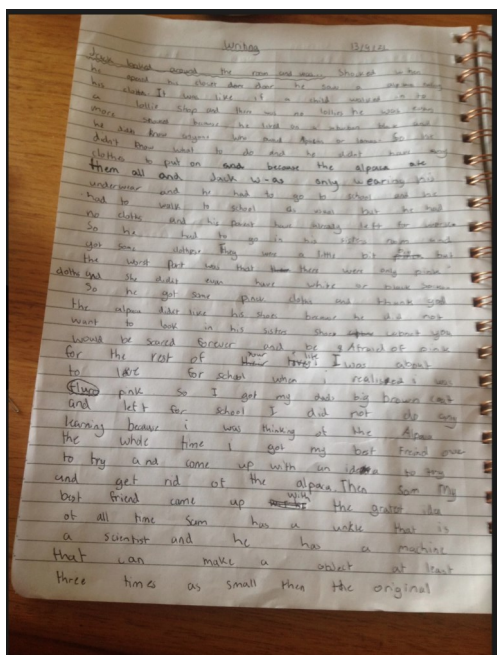 Writing
Jack looked around the room and was shocked when
he opened his closet door he saw a alpaca eating
his clothes It was like if a child walked in
a lollie shop and there was no lollies he was even
more
he didn't know anyone who owned So he
didn't know what to do and he didn't have any
clothes to put on and because the alpaca ate
them all and Jack w-as only wearing his
underwear and he had to go to school and he
had to walk to school as usual but he had
no cloths and his parent have already left for
So he had to go in his sisters room and
got some clothes They was a little bit but
the worst part was that there were only pink
cloths and she didnt even have white or black
So he got some pink cloths and thank god
the alpaca didnt like his shoes because he did not
want to look in his sisters shoes about you
would be scared forever and be Afraid of pink
for the rest of I was about
to leve for school when i realised i was
fluro pink so I got my dads big brown coat
and left for school I did not do any
learning because i was thinking of the Alpaca
the whole time I got my best freind over
to try and come up with an idea to try
and get rid of the alpaca. Then Sam My
best friend came up with the grater idea
of all time Sam has a unkle that is
a scientist and he has a machine
that can make a object at least
three times as small then the original